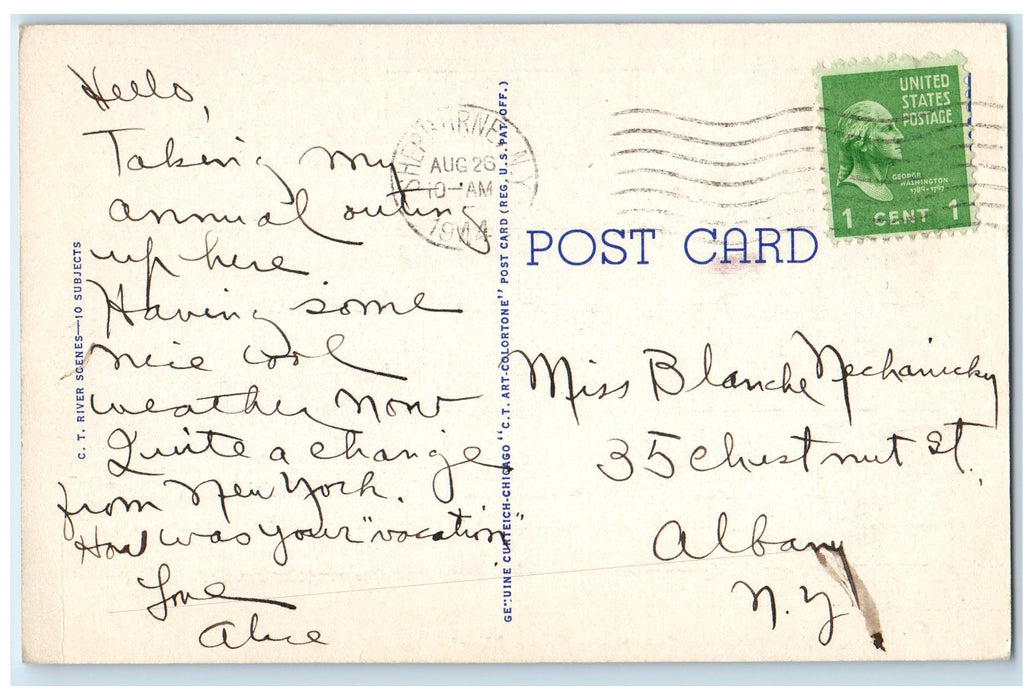 Hello,
Taking my
annual outing
up here
Having some
nice cool
weather now
Quite a change
from New York.
How was your "vacation"
Love
Alice
C. T. RIVER SCENES—10 SUBJECTS
GENUINE CURTEICH-CHICAGO "C.T. ART-COLORTONE" POST CARD (REG. U.S. PAT. OFF.)
SHERBURNE N.Y.
AUG 26
10—AM
1944
UNITED
STATES
POSTAGE
GEORGE
WASHINGTON
1789-1797
1 CENT 1
POST CARD
Miss Blanche Nechanicky
35 Chestnut St.
Albany
N.Y.